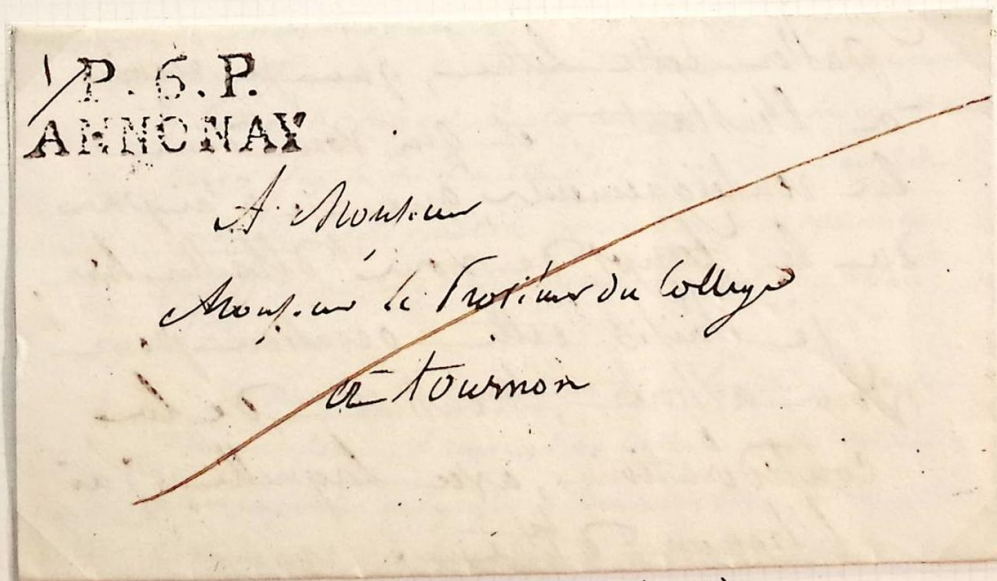 P. 6. P.
ANNONAY
A Monsieur
Monsieur le Proviseur du College
a tournon